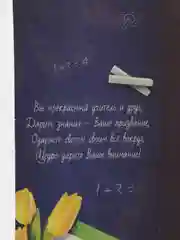 1+3=4
Вы прекрасный учитель и друг,
Дарить знания – Ваше призвание,
Одаряет светом своим всё вокруг
Мудро дорого Ваше внимание!
1+2=